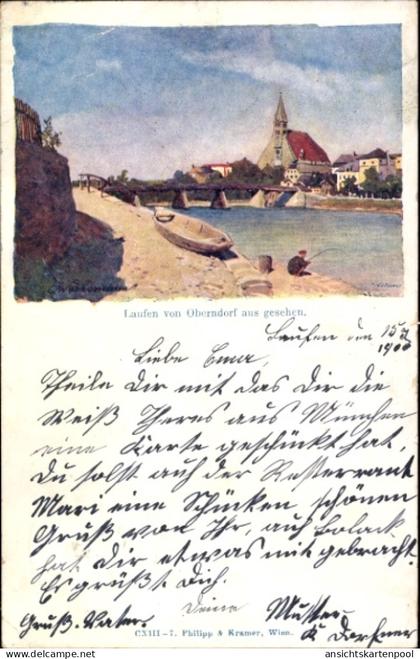 Laufen von Oberndorf aus gesehen.
Laufen den 15/7
1900
Liebe Ema,
Theile Dir mit das Dir die
Weiß Theres aus München
eine Karte geschückt hat,
Du solst auch der Resterrant
Mari eine Schücken, schönen
Gruß von Ihr, auch
hat Dir etwas mit gebracht.
Es grüßt Dich.
Deine Mutter
Gruß. Vater.
CXIII–7. Philipp & Kramer, Wien.
ansichtskartenpool